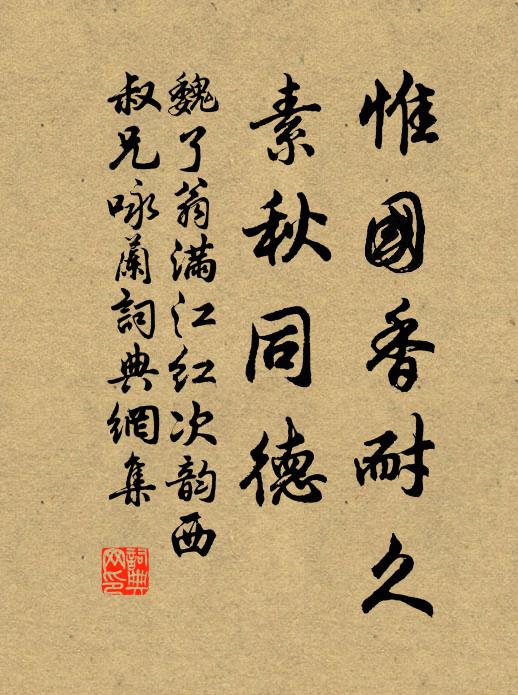 惟國香耐久
素秋同德
魏了翁滿江红次韵西
叔兄咏蘭詞典網集
詞典
网印